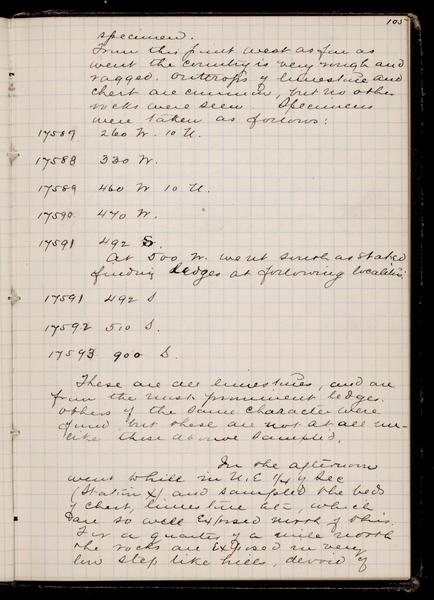 105
specimen.
From this point west as far as
went the country is very rough and
ragged. Outcrops of limestone and
chert are common, but no other
rocks were seen. Specimens
were taken as follows:
17589 260 W. 10 N.
17588 330 W.
17589 460 W 10 N.
17590 470 W.
17591 492 S.
At 500 W. went south as stated
finding ledges at following localities:
17591 492 S
17592 510 S.
17593 900 S.
These are all limestones, and are
from the most prominent ledges.
Others of the same character were
found but these are not at all un-
like these above sampled.
In the afternoon
went to hill in N.E. 1/4 of Sec
(Station X) and sampled the beds
of chert, limestone etc, which
are so well exposed north of this.
For a quarter of a mile north
the rocks are exposed in very
low step like hills, devoid of